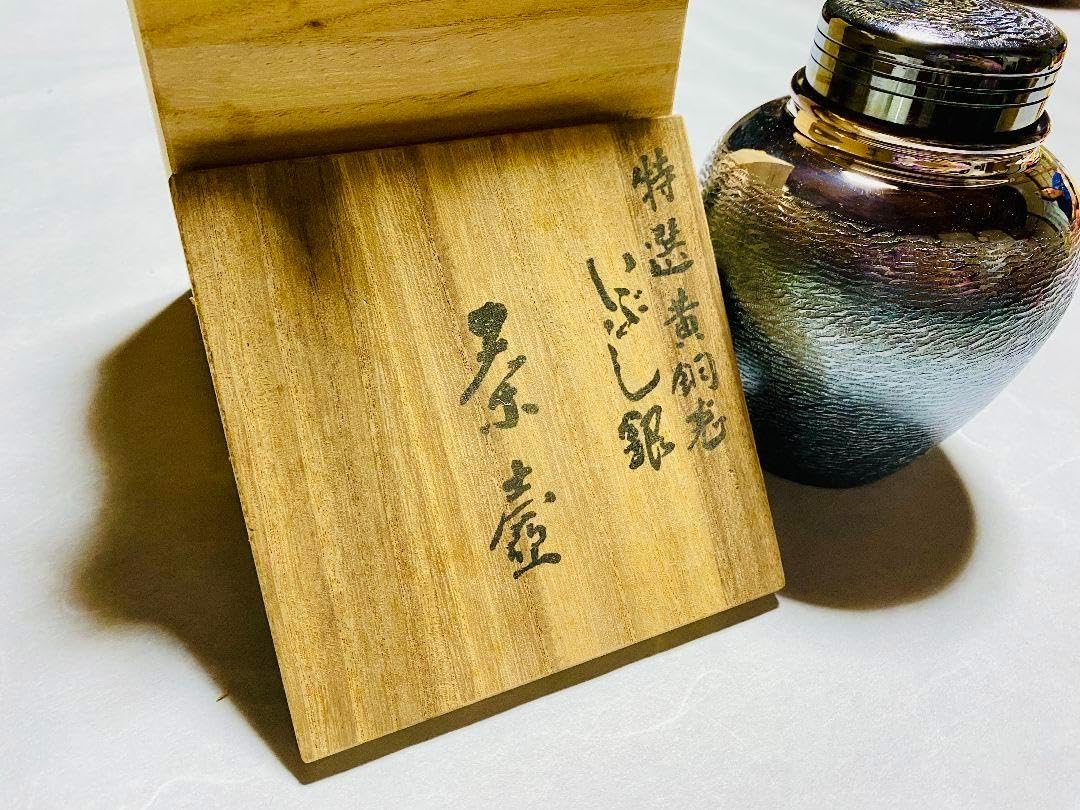 特選黄銅
いぶし銀
茶壺